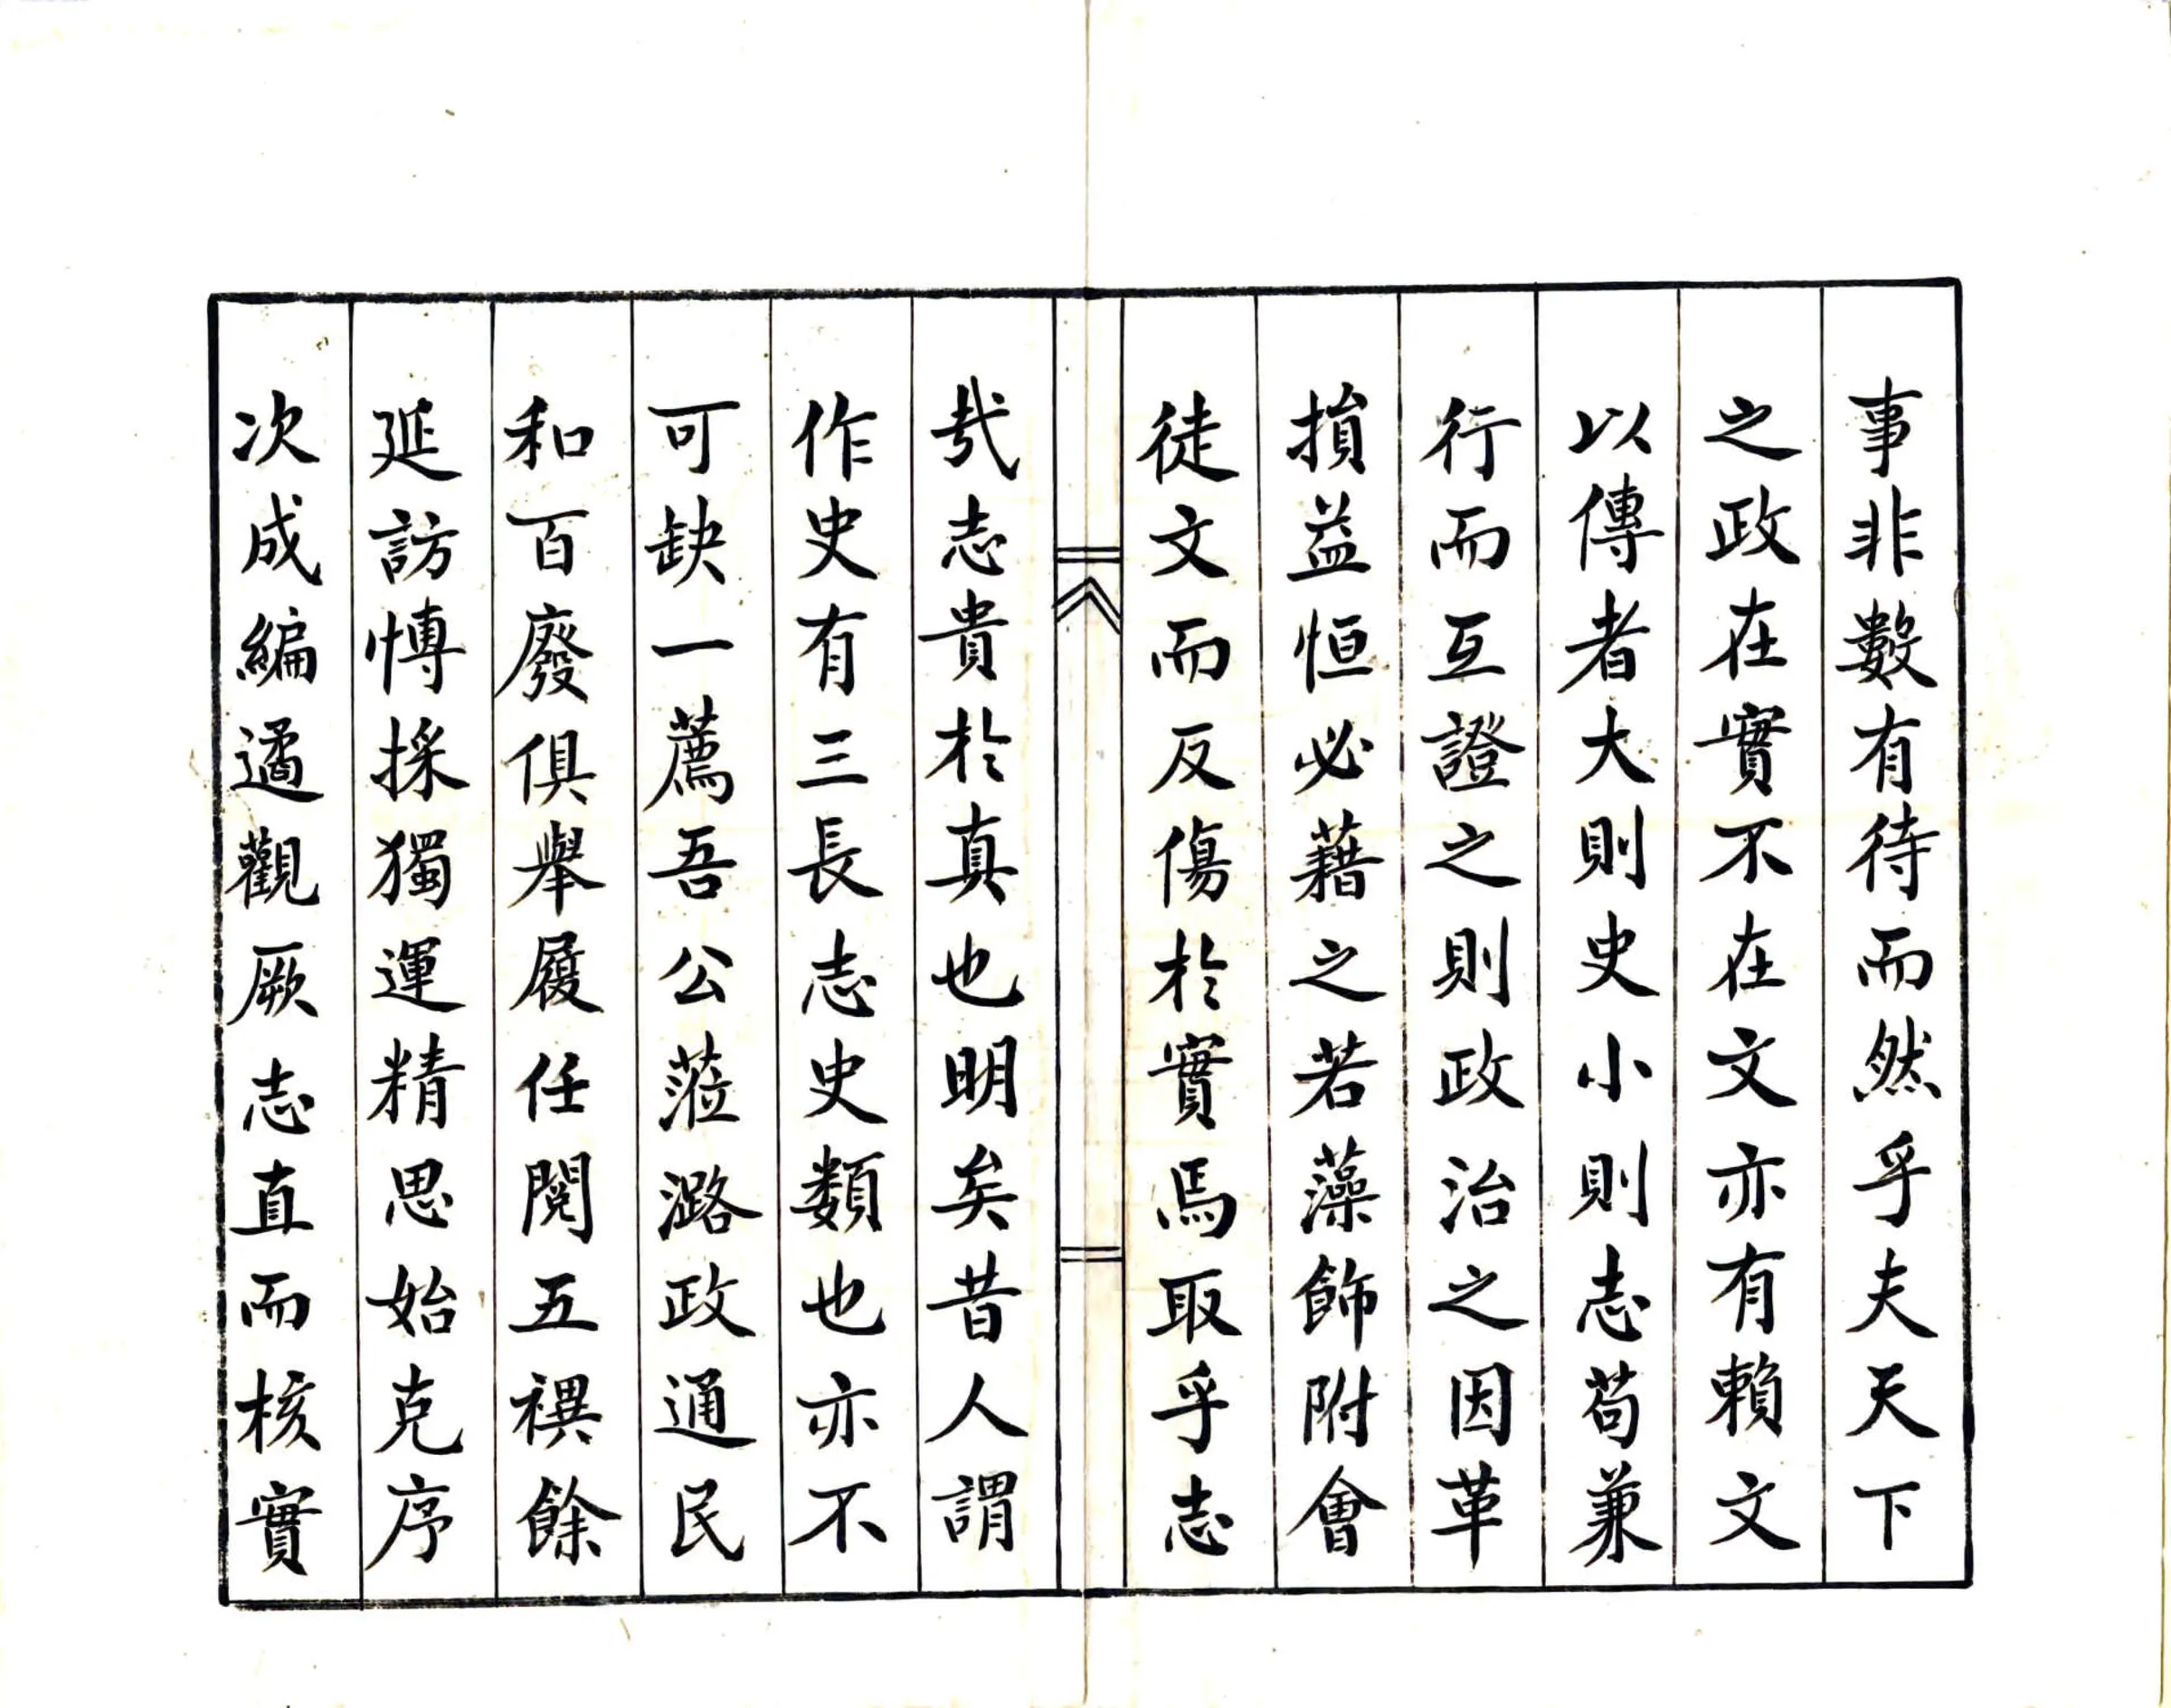 事非數有待而然乎夫天下
之政在實不在文亦有賴文
以傳者大則史小則志苟兼
行而互證之則政治之因革
損益恒必藉之若藻飾附會
徒文而反傷於實焉取乎志
哉志貴於真也明矣昔人謂
作史有三長志史類也亦不
可缺一薦吾公蒞潞政通民
和百廢俱舉履任閱五禩餘
延訪博採獨運精思始克序
次成編遹觀厥志直而核實